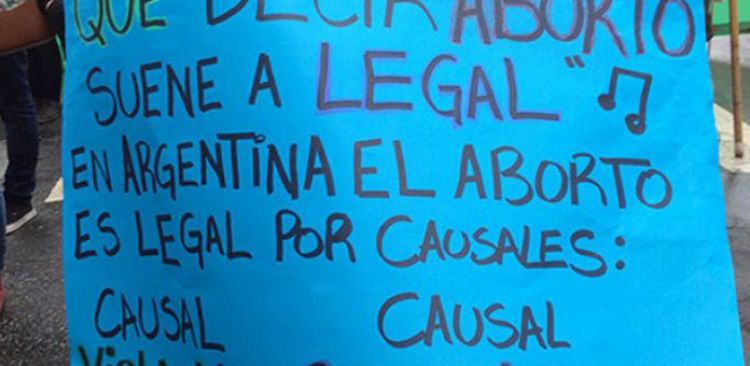 QUE DECIR ABORTO
SUENE A LEGAL" ♫
EN ARGENTINA EL ABORTO
ES LEGAL POR CAUSALES:
CAUSAL CAUSAL